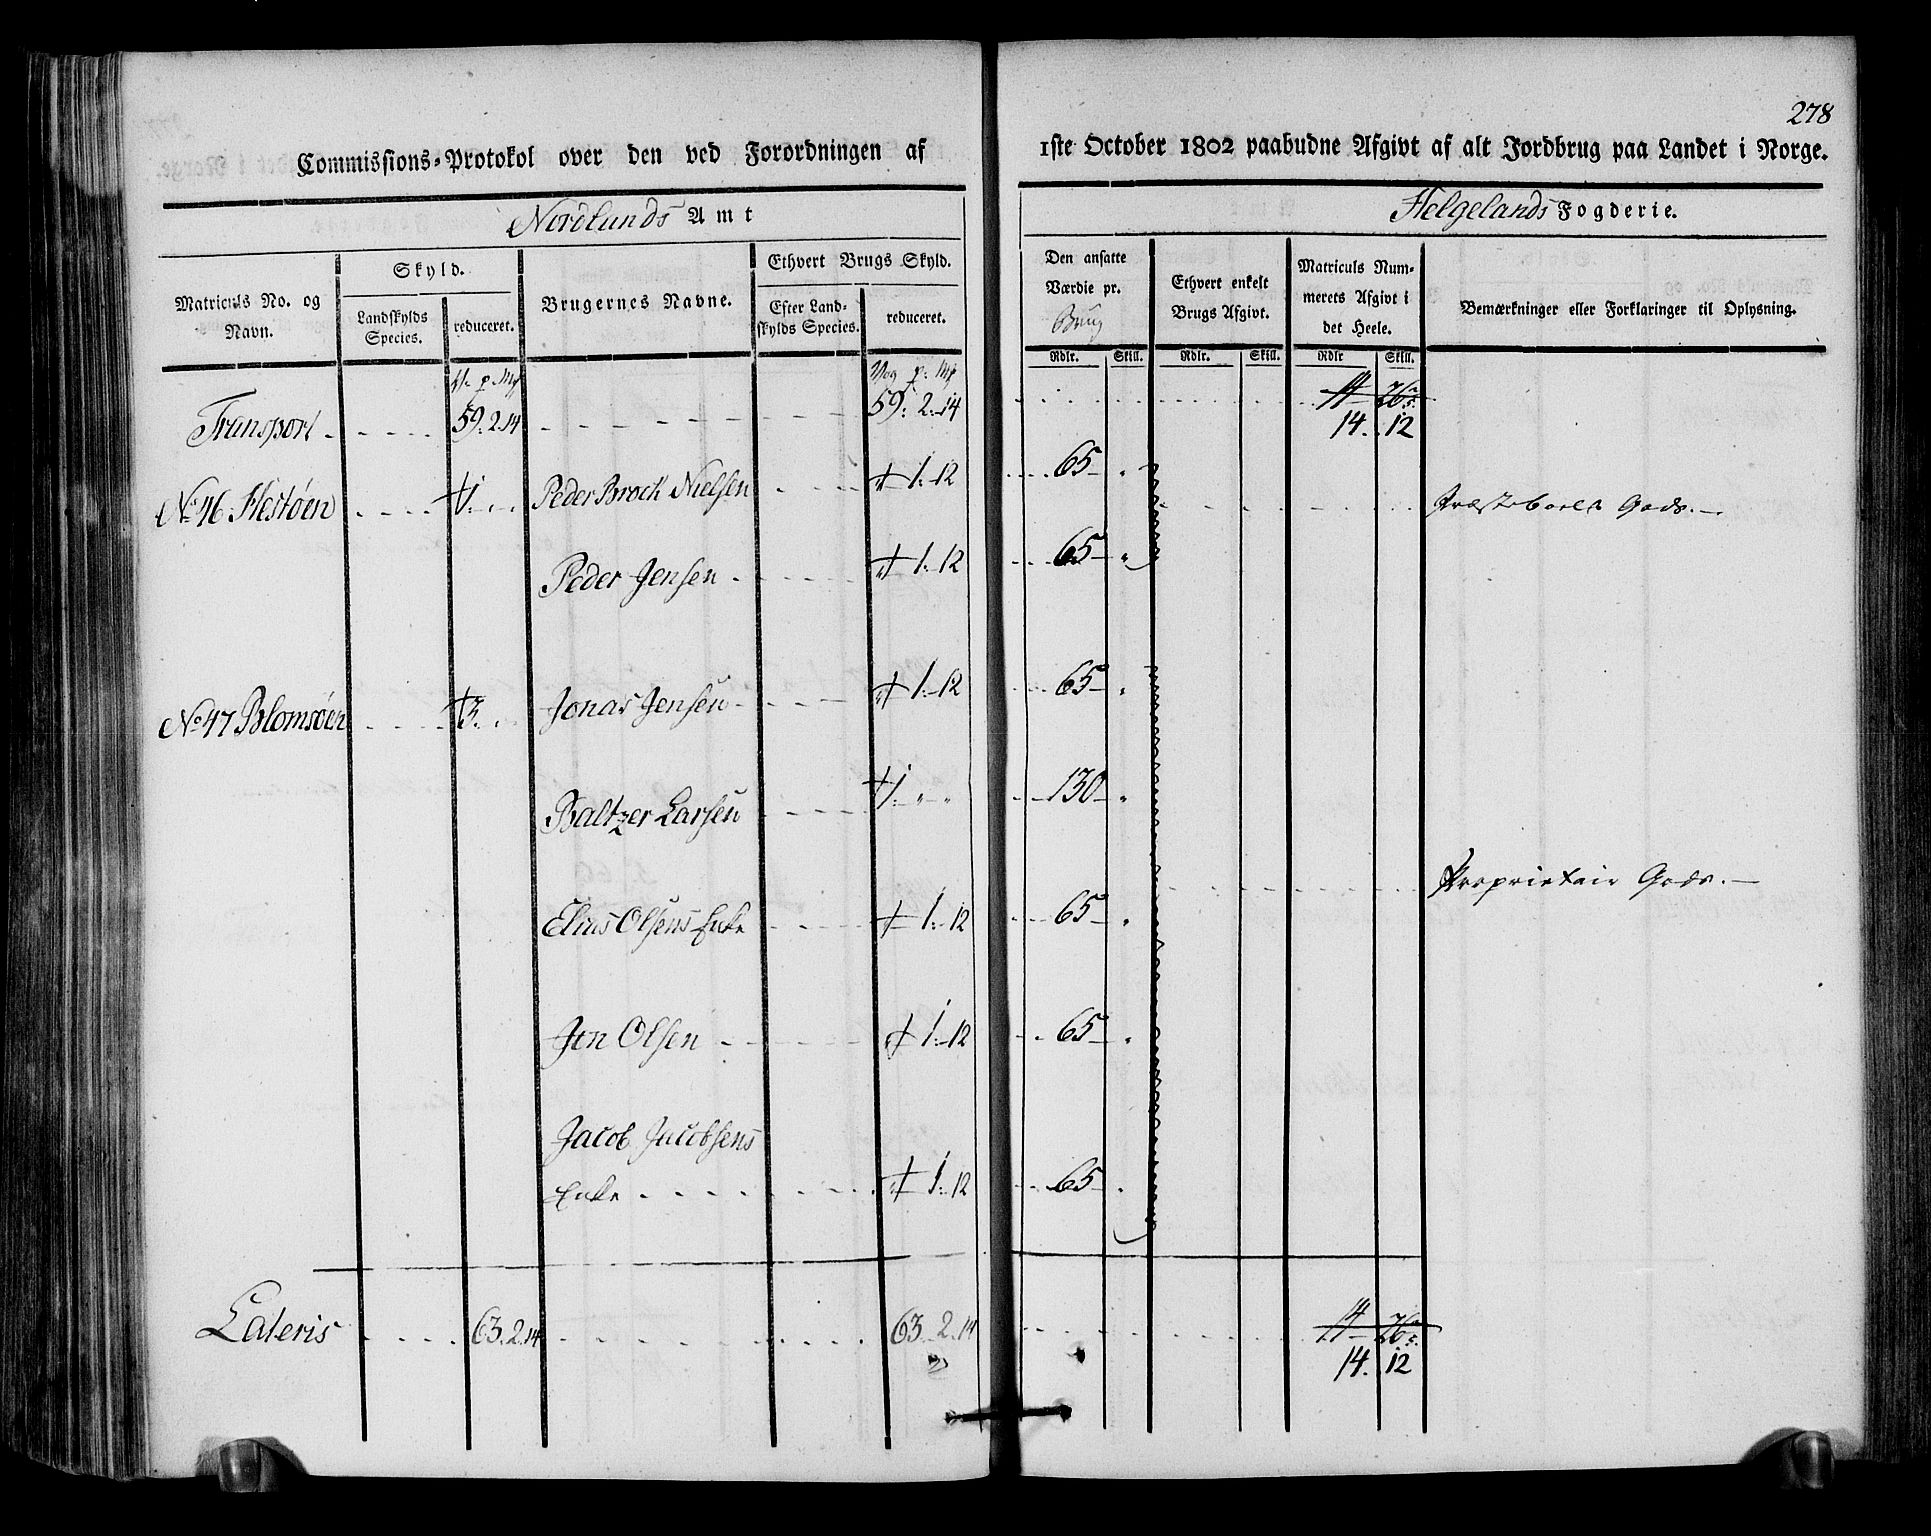 278
Commissions-Protokol over den ved Forordningen af 1ste October 1802 paabudne Afgivt af alt Jordbrug paa Landet i Norge.
Nordlands Amt
Helgelands Fogderie.
Matriculs No. og Navn.
Skyld.
Landskylds Species.
reduceret.
Brugernes Navne.
Ethvert Brugs Skyld.
Efter Landskylds Species.
reduceret.
Den ansatte Værdie pr. Brug
Rdlr. Skill.
Ethvert enkelt Brugs Afgivt.
Rdlr. Skill.
Matriculs Nummerets Afgivt i det Heele.
Rdlr Skill.
Bemærkninger eller Forklaringer til Oplysning.
V. p. Mk
Vog p. Mk
Transport 59. 2. 14 59. 2. 14
14. 12
No 46 Hestøen 1. Peder Brock Nielsen 1. 12 65
Præsteboels Gods.
Peder Jensen 1. 12 65
No 47 Blomsøen 3. Jonas Jensen 1. 12 65
Baltzer Larsen 1. 130
Proprietair Gods.
Elias Olsens Enke 1. 12 65
Jon Olsen 1. 12 65
Jacob Jacobsens
Enke 1. 12 65
Lateris 63. 2. 14 63. 2. 14
14. 12